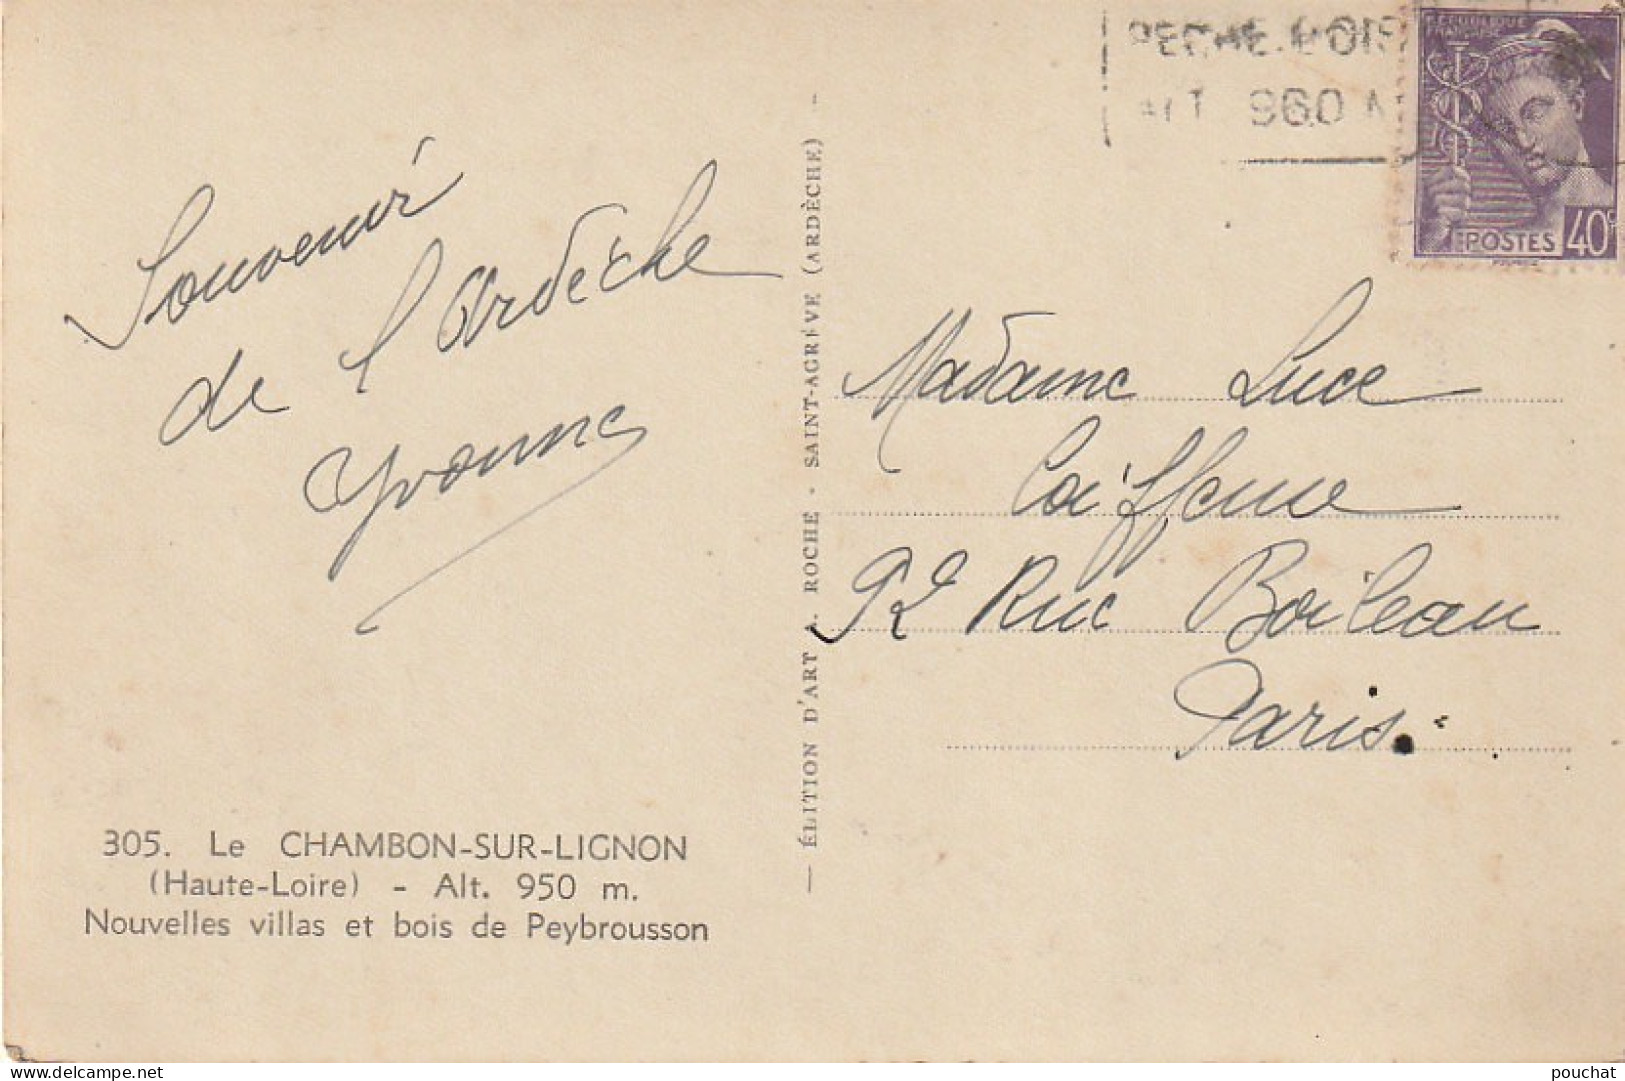 Souvenir
de l'Ardèche
Yvonne
305. Le CHAMBON-SUR-LIGNON
(Haute-Loire) - Alt. 950 m.
Nouvelles villas et bois de Peybrousson
— ÉDITION D'ART A. ROCHE - SAINT-AGRÈVE (ARDÈCHE) -
ALT 960 M
RÉPUBLIQUE
FRANÇAISE
POSTES 40c
Madame Luce
Coiffeuse
92 Rue Boileau
Paris.
delcampe.net
pouchat